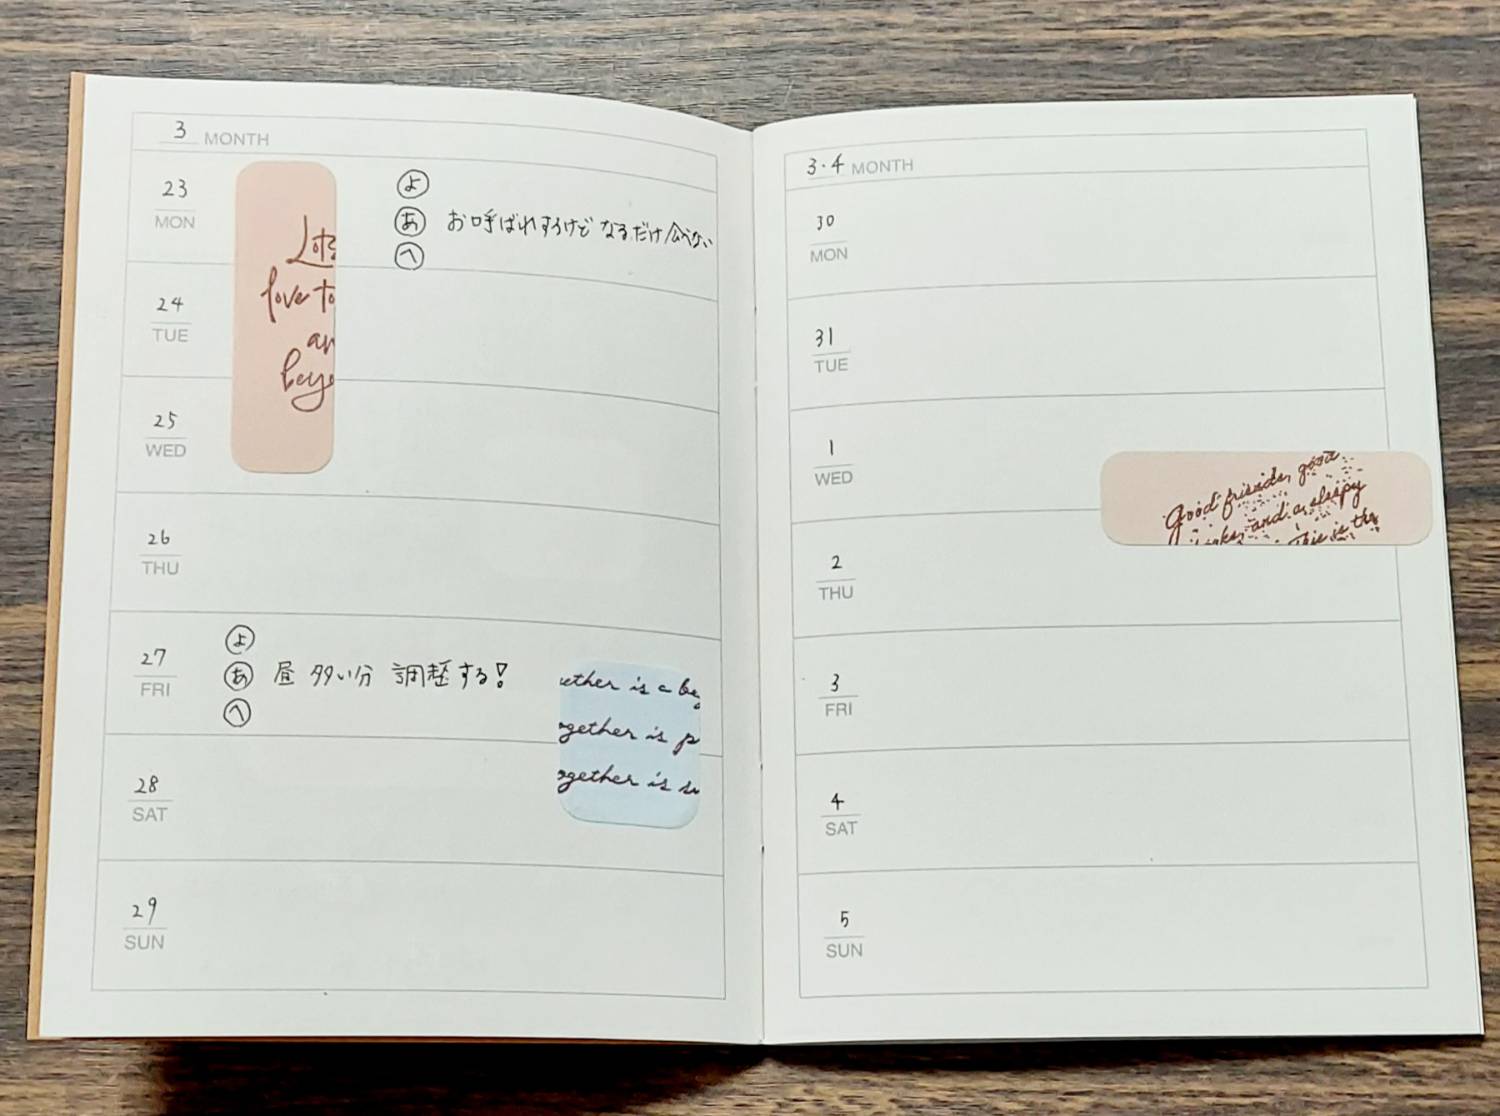 3 MONTH
23
MON
よ
あ お呼ばれするけど なるだけ 食べない
へ
24
TUE
25
WED
26
THU
27
FRI
よ
あ 昼 多い分 調整する!
へ
28
SAT
29
SUN
love to
beyo
ether is a be
ogether is p
ogether is su
3・4 MONTH
30
MON
31
TUE
1
WED
2
THU
3
FRI
4
SAT
5
SUN
Good friends, good
and a sleepy
This is the